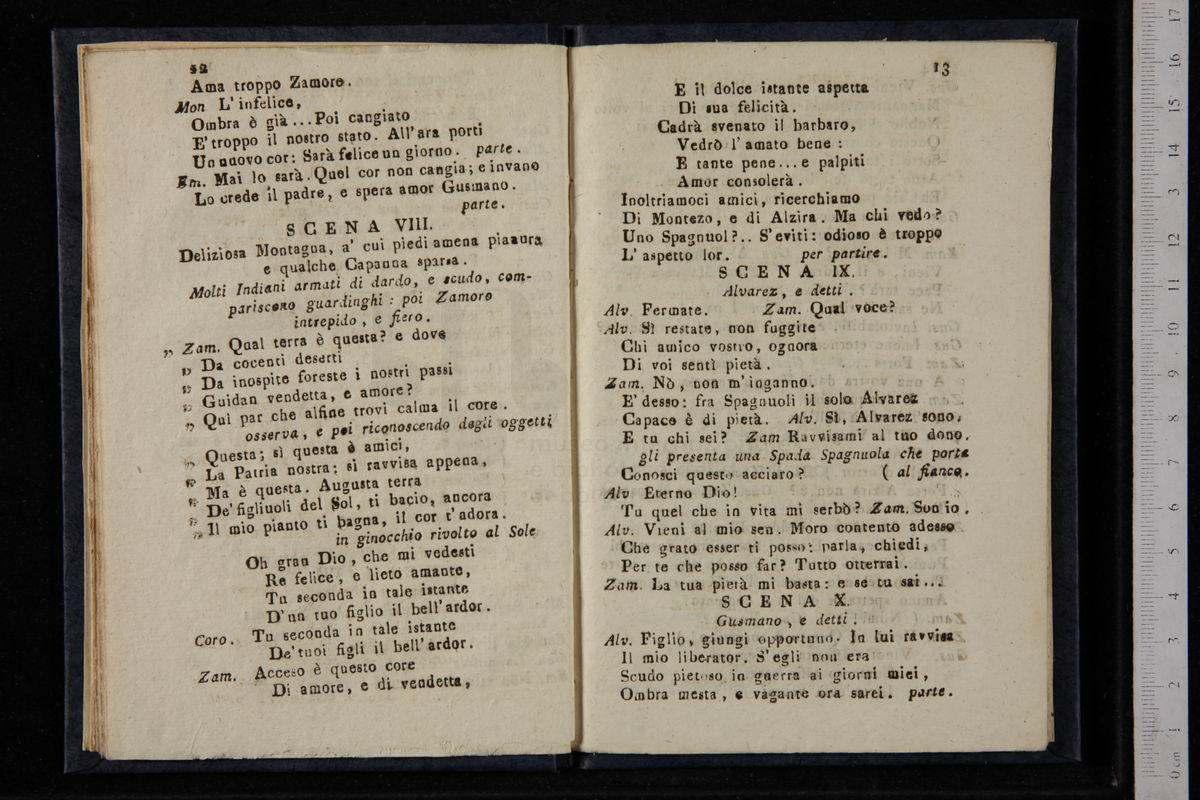 12
Ama troppo Zamore.
Mon L'infelice,
Ombra è già...Poi cangiato
E'troppo il nostro stato. All'ara porti
Un nuovo cor: Sarà felice un giorno. parte.
Em. Mai lo sarà. Quel cor non cangia; e invano
Lo crede il padre, e spera amor Gusmano.
parte.
SCENA VIII.
Deliziosa Montagna, a' cui piedi amena pianura
e qualche Capanna sparsa.
Molti Indiani armati di dardo, e scudo, com-
pariscono guardinghi: poi Zamoro
intrepido, e fiero.
„ Zam. Qual terra è questa? e dove
„ Da cocenti deserti
„ Da inospite foreste i nostri passi
„ Guidan vendetta, e amore?
„ Quì par che alfine trovi calma il core.
osserva, e poi riconoscendo degli oggetti
„ Questa; sì questa è amici,
„ La Patria nostra: si ravvisa appena,
„ Ma è questa. Augusta terra
„ De'figliuoli del Sol, ti bacio, ancora
„ Il mio pianto ti bagna, il cor t'adora.
in ginocchio rivolto al Sole
Oh gran Dio, che mi vedesti
Re felice, e lieto amante,
Tu seconda in tale istante
D'un tuo figlio il bell'ardor.
Coro. Tu seconda in tale istante
De'tuoi figli il bell'ardor.
Zam. Acceso è questo core
Di amore, e di vendetta,
13
E il dolce istante aspetta
Di sua felicità.
Cadrà svenato il barbaro,
Vedrò l'amato bene:
E tante pene...e palpiti
Amor consolerà.
Inoltriamoci amici, ricerchiamo
Di Montezo, e di Alzira. Ma chi vedo?
Uno Spagnuol?.. S'eviti: odioso è troppo
L'aspetto lor. per partire.
SCENA IX.
Alvarez, e detti.
Alv. Fermate. Zam. Qual voce?
Alv. Sì restate, non fuggite
Chi amico vostro, ognora
Di voi sentì pietà.
Zam. Nò, non m'inganno.
E'desso: fra Spagnuoli il solo Alvarez
Capace è di pietà. Alv. Sì, Alvarez sono.
E tu chi sei? Zam Ravvisami al tuo dono.
gli presenta una Spada Spagnuola che porta
Conosci questo acciaro? ( al fianco.
Alv Eterno Dio!
Tu quel che in vita mi serbò? Zam. Son io.
Alv. Vieni al mio sen. Moro contento adesso
Che grato esser ti posso: parla, chiedi,
Per te che posso far? Tutto otterrai.
Zam. La tua pietà mi basta: e se tu sai...
SCENA X.
Gusmano, e detti.
Alv. Figlio, giungi opportuno. In lui ravvisa
Il mio liberator. S'egli non era
Scudo pietoso in guerra ai giorni miei,
Ombra mesta, e vagante ora sarei. parte.